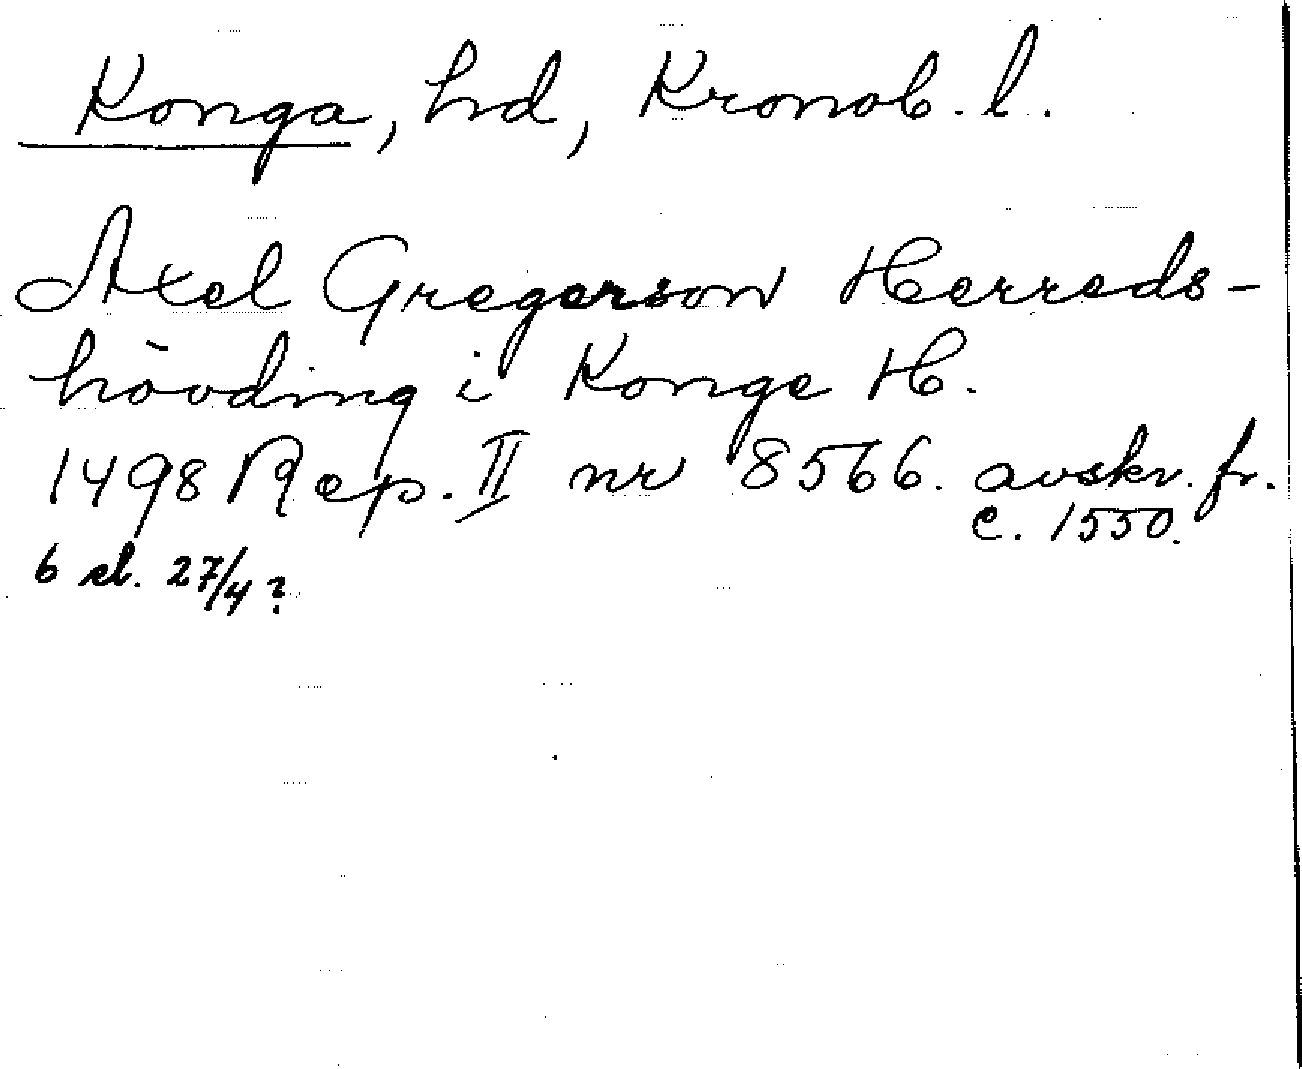 Konga, hd, Kronob. l.
Axel Gregerson Herreds-
hövding i Konge H.
1498 Rep. II nr 8566. avskr. fr.
c. 1550.
6 el. 27/4?